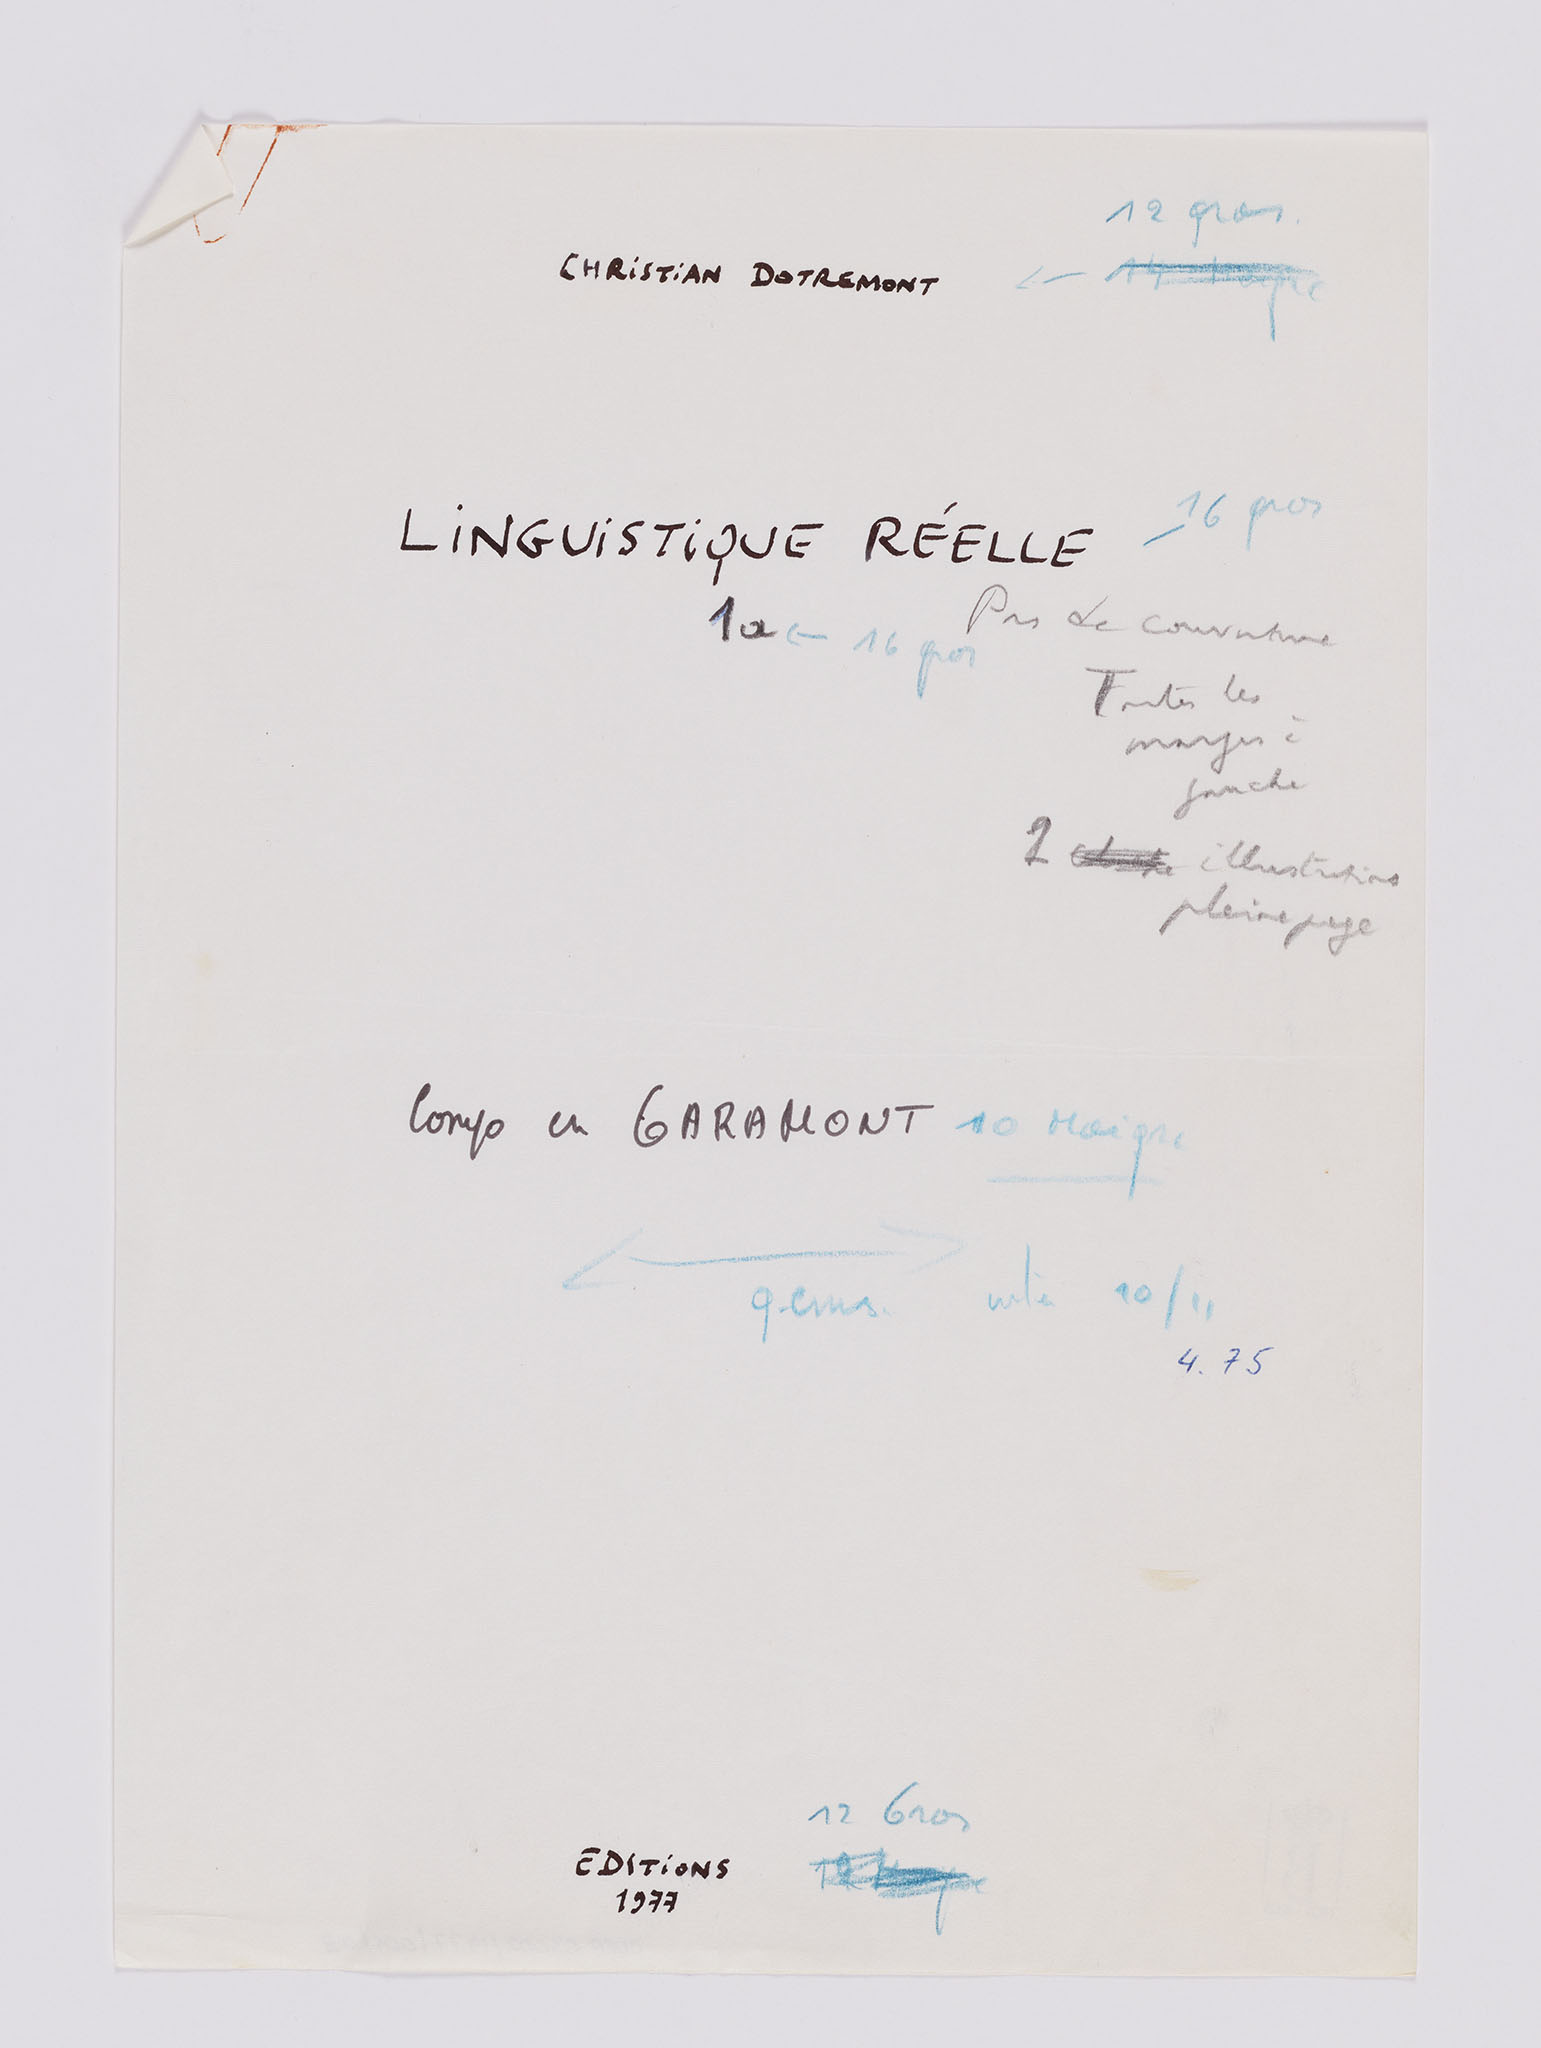 12 gros.
CHRiSTiAN DOTREMONT
14 Maigre
LiNGUiSTiQUE RÉELLE
16 gros
1a
16 gros
Pas de couverture
Toutes les
marges à
gauche
2 illustrations
pleine page
Compo en GARAMONT 10 Maigre
9 cms. 10/11
4.75
12 Gros
EDiTiONS
1977